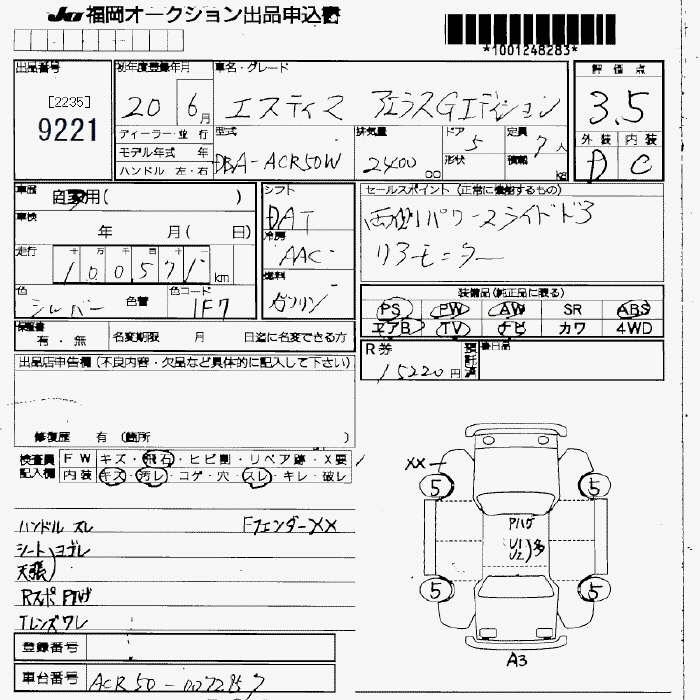 JU 福岡オークション出品申込書
*1001248283*
出品番号
[2235]
9221
初年度登録年月
20 6月
ディーラー・並行
モデル年式 年
ハンドル 左・右
車名・グレード
エスティマ アエラスGエディション
型式 排気量 ドア 5 定員 7人
DBA-ACR50W 2400 cc 形状 積載 kg
評価点
3.5
外装 内装
D C
車歴 自家用( )
車検 年 月( 日)
走行 十 万 千 百 十 一
100571 km
色 シルバー 色替 色コード 1F7
シフト
DAT
冷房
AAC
燃料
ガソリン
セールスポイント (正常に機能するもの)
両側パワースライドドア
リアモニター
装備品(純正品に限る)
PS PW AW SR ABS
エアB TV ナビ カワ 4WD
保証書 有・無 名変期限 月 日迄に名変できる方
R券 15220円 預託済 後日品
出品店申告欄(不良内容・欠品など具体的に記入して下さい)
修復歴 有 (箇所 )
検査員記入欄
FW キズ・飛石・ヒビ割・リペア跡・X要
内装 キズ・汚レ・コゲ・穴・スレ・キレ・破レ
ハンドル スレ Fフェンダーxx
シート ヨゴレ
天張
Rスポ Pハゲ
Tレンズワレ
xx
5 5
Pハゲ
U1
U2 多
5 5
A3
登録番号
車台番号 ACR50-